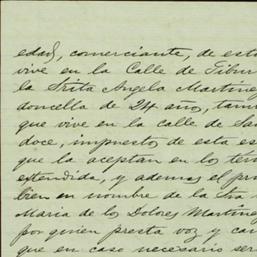 edad, comerciante, de est
vive en la Calle de Tibur
la Srita Angela Martine
doncella de 24 año, tam
que vive en la calle de Sa
doce, impuestos de esta es
que la aceptan en los tér
extendida, y ademas el pr
bien en nombre de la Sra
Maria de los Dolores Martine
por quien presta voz y ca
que en caso necesario ser